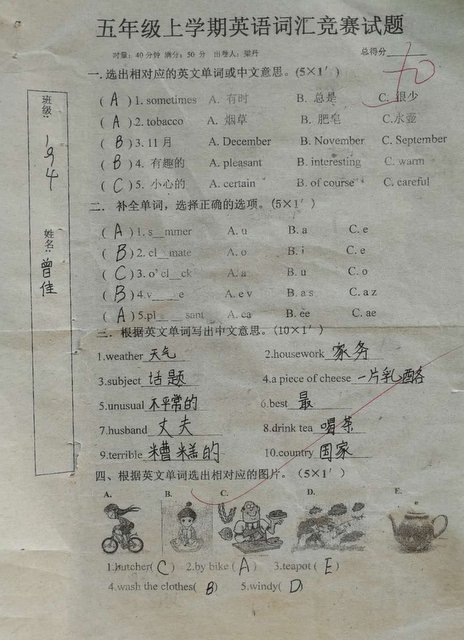 五年级上学期英语词汇竞赛试题
时量：40分钟 满分：50分 出卷人：梁丹 总得分
50
一.选出相对应的英文单词或中文意思。(5×1′)
( A ) 1. sometimes A. 有时 B. 总是 C. 很少
( A ) 2. tobacco A. 烟草 B. 肥皂 C.水壶
( B ) 3. 11月 A. December B. November C. September
( B ) 4. 有趣的 A. pleasant B. interesting C. warm
( C ) 5. 小心的 A. certain B. of course C. careful
二. 补全单词，选择正确的选项。(5×1′)
( A ) 1. s__mmer A. u B. a C. e
( B ) 2. cl__mate A. o B. i C. e
( C ) 3. o' cl__ck A. a B. u C. o
( B ) 4.v____e A. e v B. a s C. a z
( A ) 5.pl____sant A. ea B. ee C. ae
三. 根据英文单词写出中文意思。(10×1′)
1.weather 天气 2.housework 家务
3.subject 话题 4.a piece of cheese 一片乳酪
5.unusual 不平常的 6.best 最
7.husband 丈夫 8.drink tea 喝茶
9.terrible 糟糕的 10.country 国家
四、根据英文单词选出相对应的图片。(5×1′)
A. B. C. D. E.
1.butcher( C ) 2.by bike ( A ) 3.teapot ( E )
4.wash the clothes( B ) 5.windy( D )
班级: 194
姓名: 曾佳